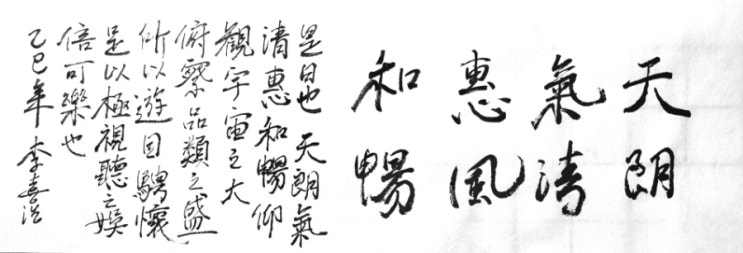 天朗
氣清
惠風
和暢
是日也 天朗氣
清惠和暢仰
觀宇宙之大
俯察品類之盛
所以遊目騁懷
是以極視聽之娛
信可樂也
乙巳年 李喜